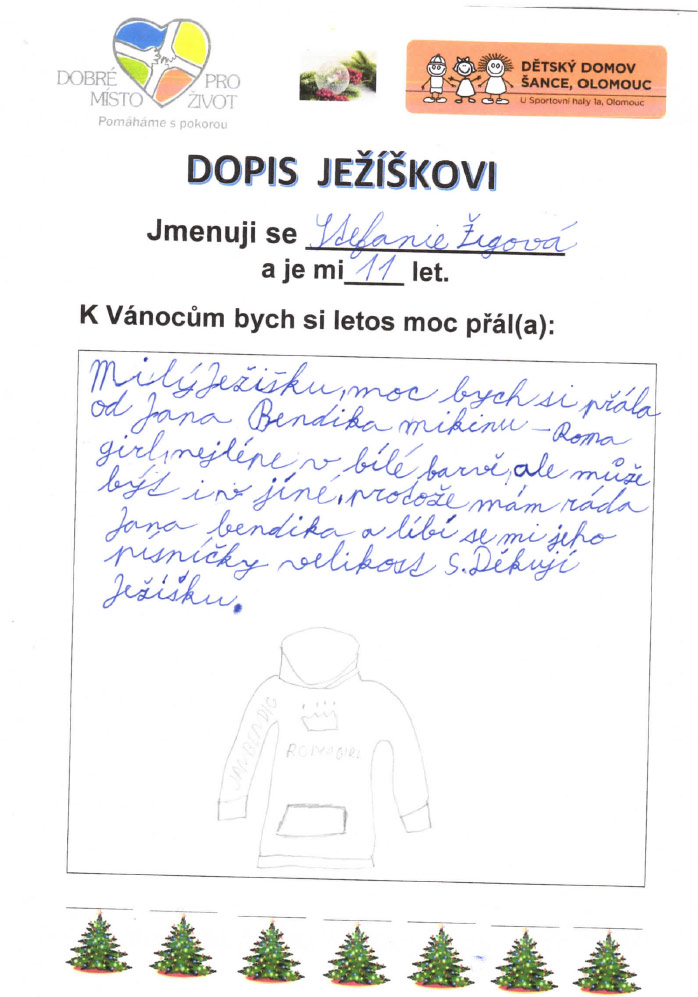 DOBRÉ PRO
MÍSTO ŽIVOT
Pomáháme s pokorou
DĚTSKÝ DOMOV
ŠANCE, OLOMOUC
U Sportovní haly 1a, Olomouc
DOPIS JEŽÍŠKOVI
Jmenuji se Stefanie Žigová
a je mi 11 let.
K Vánocům bych si letos moc přál(a):
Milý Ježíšku, moc bych si přála
od Jana Bendika mikinu – Roma
girl, nejlépe v bílé barvě, ale může
být i v jíné, protože mám ráda
Jana bendika a líbí se mi jeho
písníčky velikost S. Děkují
Ježíšku.
JAN BENDIG
ROMA GIRL